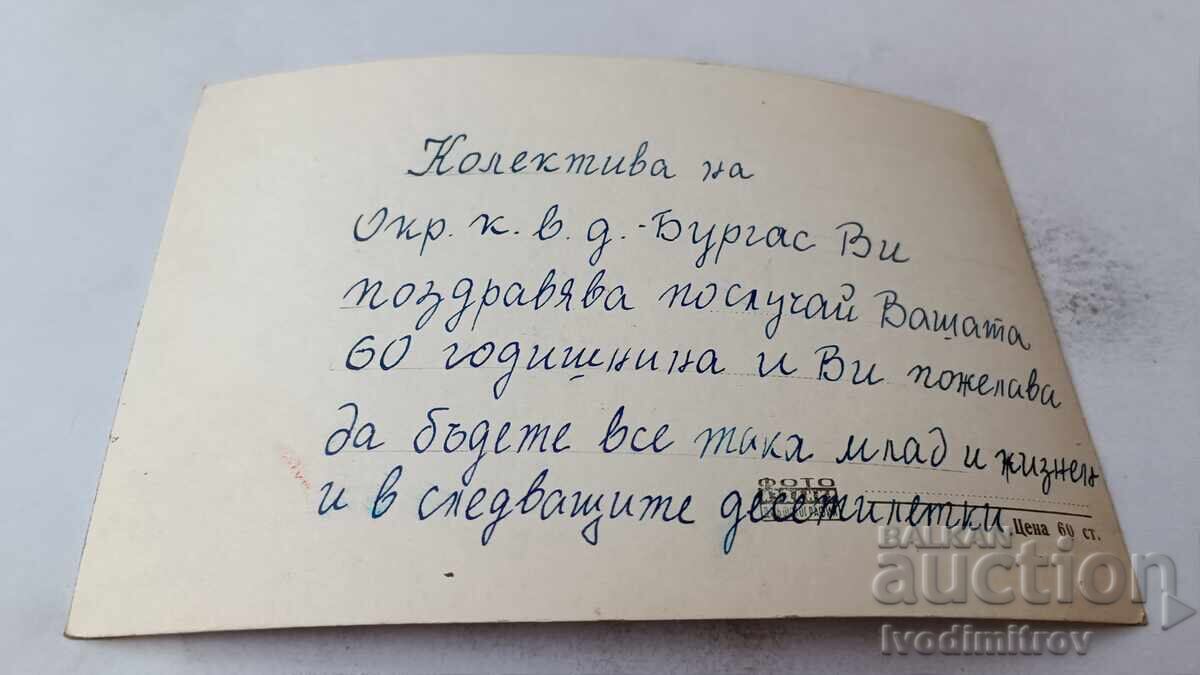 Колектива на
Окр. к. в. д. - Бургас Ви
поздравява послучай Вашата
60 годишнина и Ви пожелава
да бъдете все така млад и жизнен
и в следващите десетилетки.
ФОТО
Цена 60 ст.
BALKAN
auction
Ivodimitrov